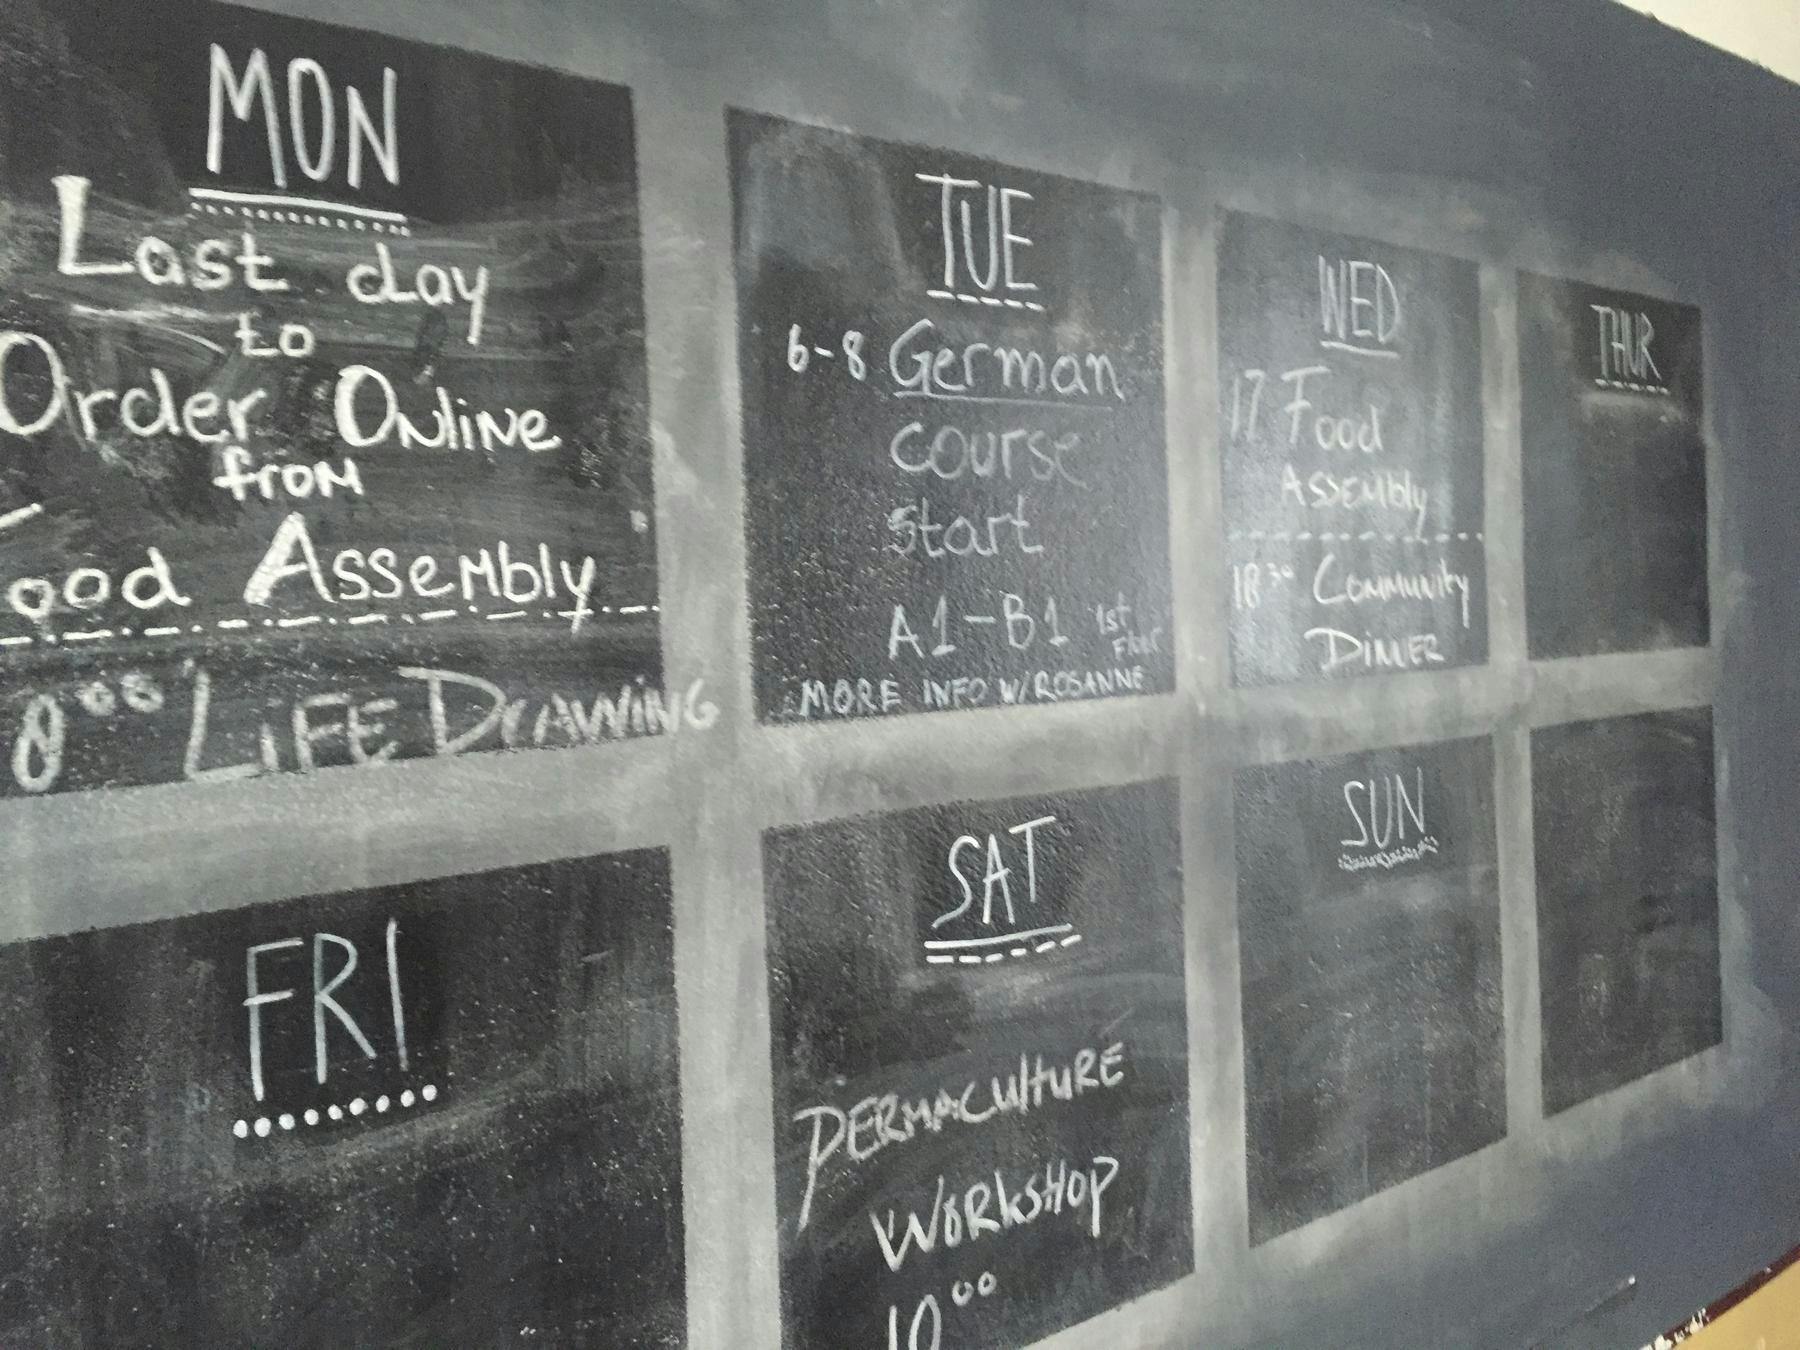 MON
Last day
to
Order Online
from
ood Assembly
8⁰⁰ Life Drawing
TUE
6-8 German
course
start
A1-B1 1st
Floor
MORE INFO W/ROSANNE
WED
17 Food
Assembly
18³⁰ Community
Dinner
THUR
FRI
SAT
PERMACulture
WORKSHOP
10⁰⁰
SUN